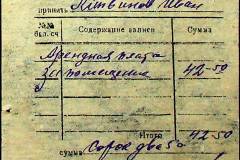 принять Литвинов Иван
№ бал. сч Содержание записи Сумма
Арендная плата
за помещение 42-50
Итого 42-50
сумма Сорок два